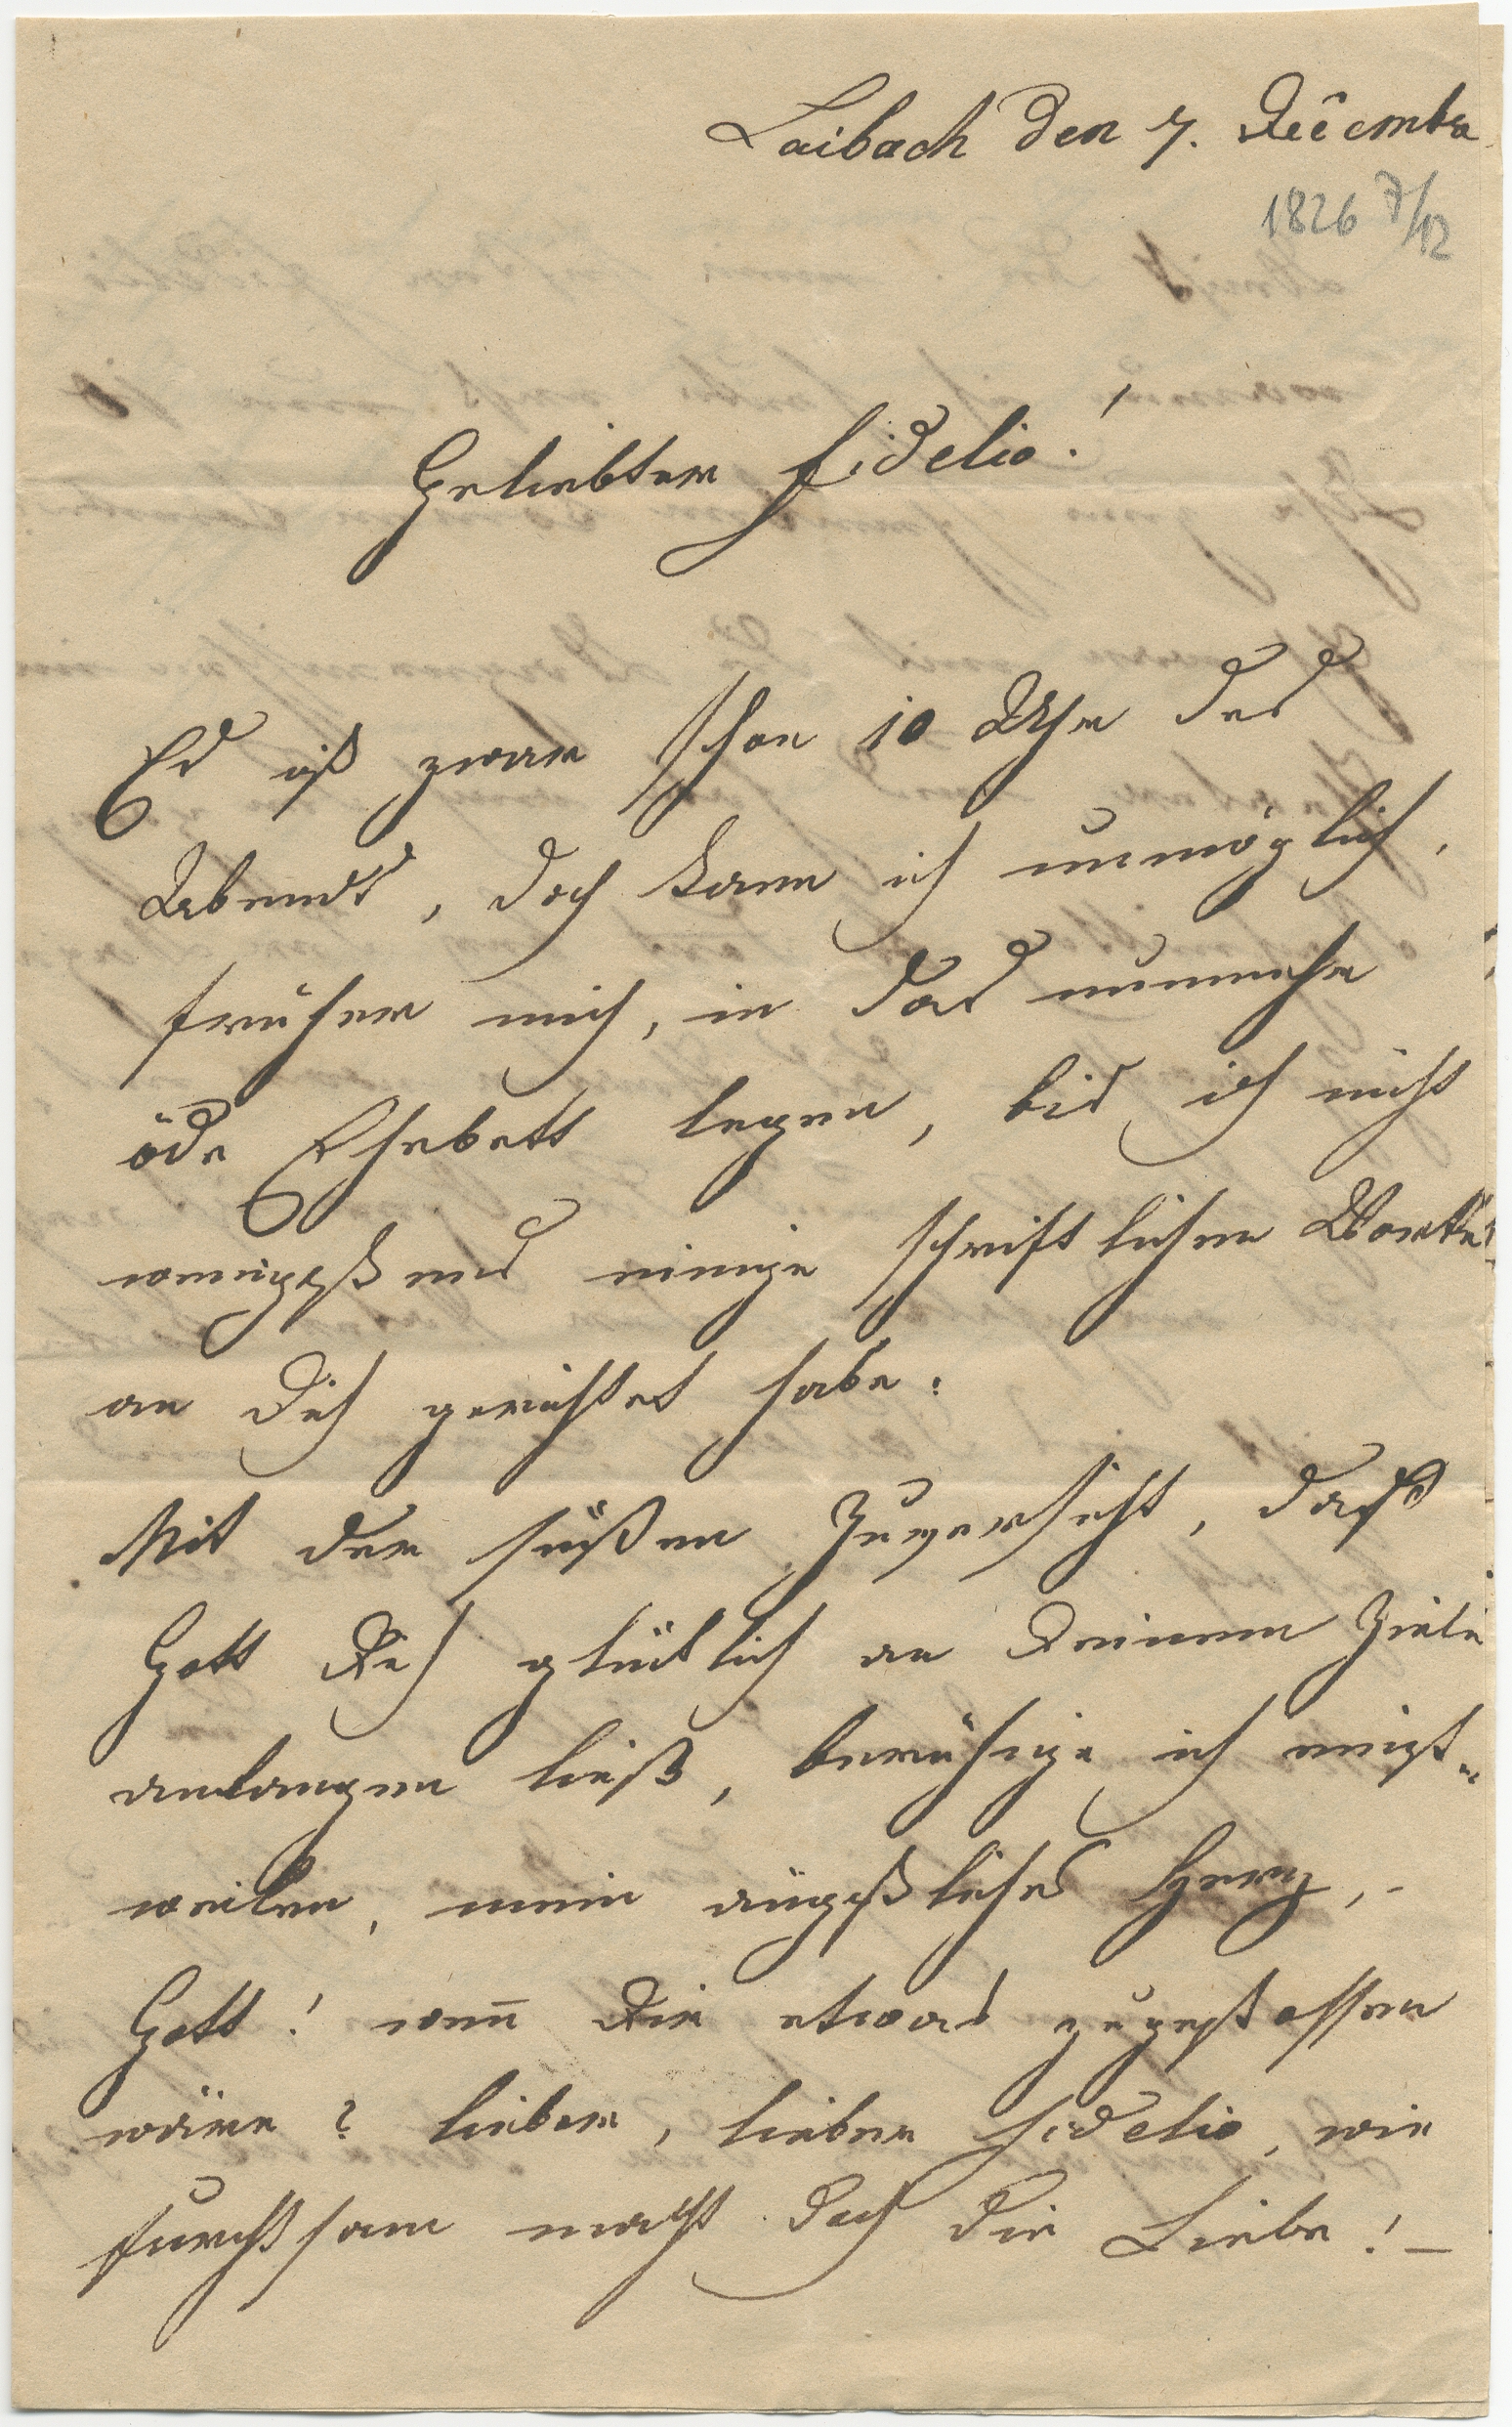 Laibach den 7. Decemba
1826 7/12
Geliebter Fidelio!
Es ist zwar schon 10 Uhr des
Abends, doch kann ich unmöglich,
früher mich, in das nunmehr
öde Ehebett legen, bis ich nicht
wenigstens einige schriftlichen Worte
an Dich gerichtet habe.
Mit der süßen Zuversicht, daß
Gott Dich glücklich an Deinem Ziele
anlangen ließ, beruhige ich einst=
weilen, mein ängstliches Herz, -
Gott! wenn Dir etwas zugestossen
wäre? lieber, lieber Fidelio, wie
furchtsam macht doch die Liebe! -